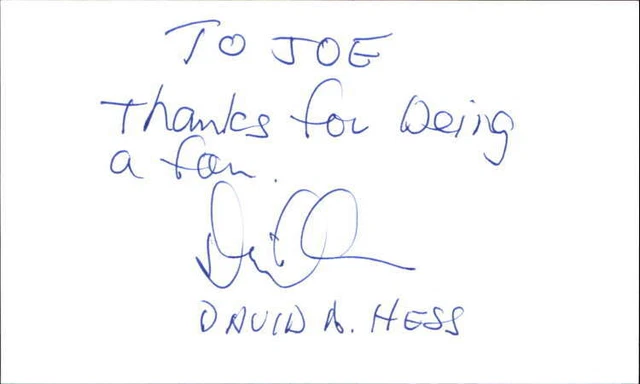 TO JOE
Thanks for being
a fan.
DAVID A. HESS